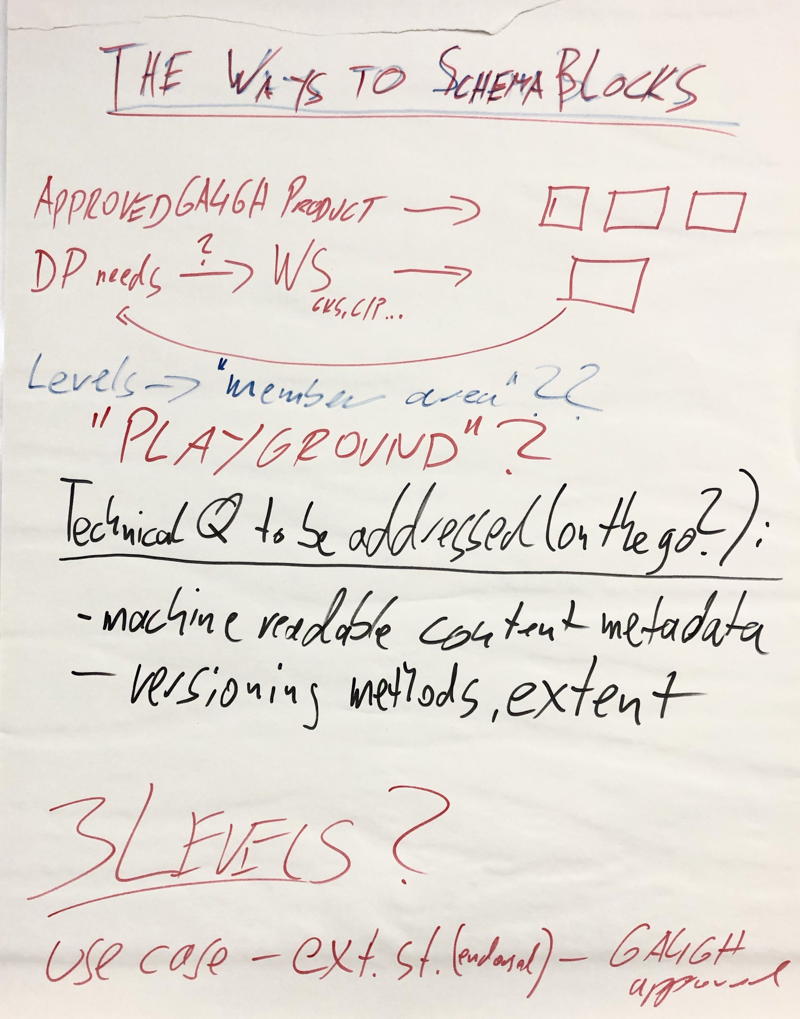 THE WAYS TO SCHEMABLOCKS
APPROVED GA4GH PRODUCT →
DP needs ?→ WS →
CKS, C/P...
Levels → "member area" ??
"PLAYGROUND" ?
Technical Q to be addressed (on the go?):
- machine readable content metadata
- versioning methods, extent
3 LEVELS ?
use case - ext. st. - GA4GH
approved